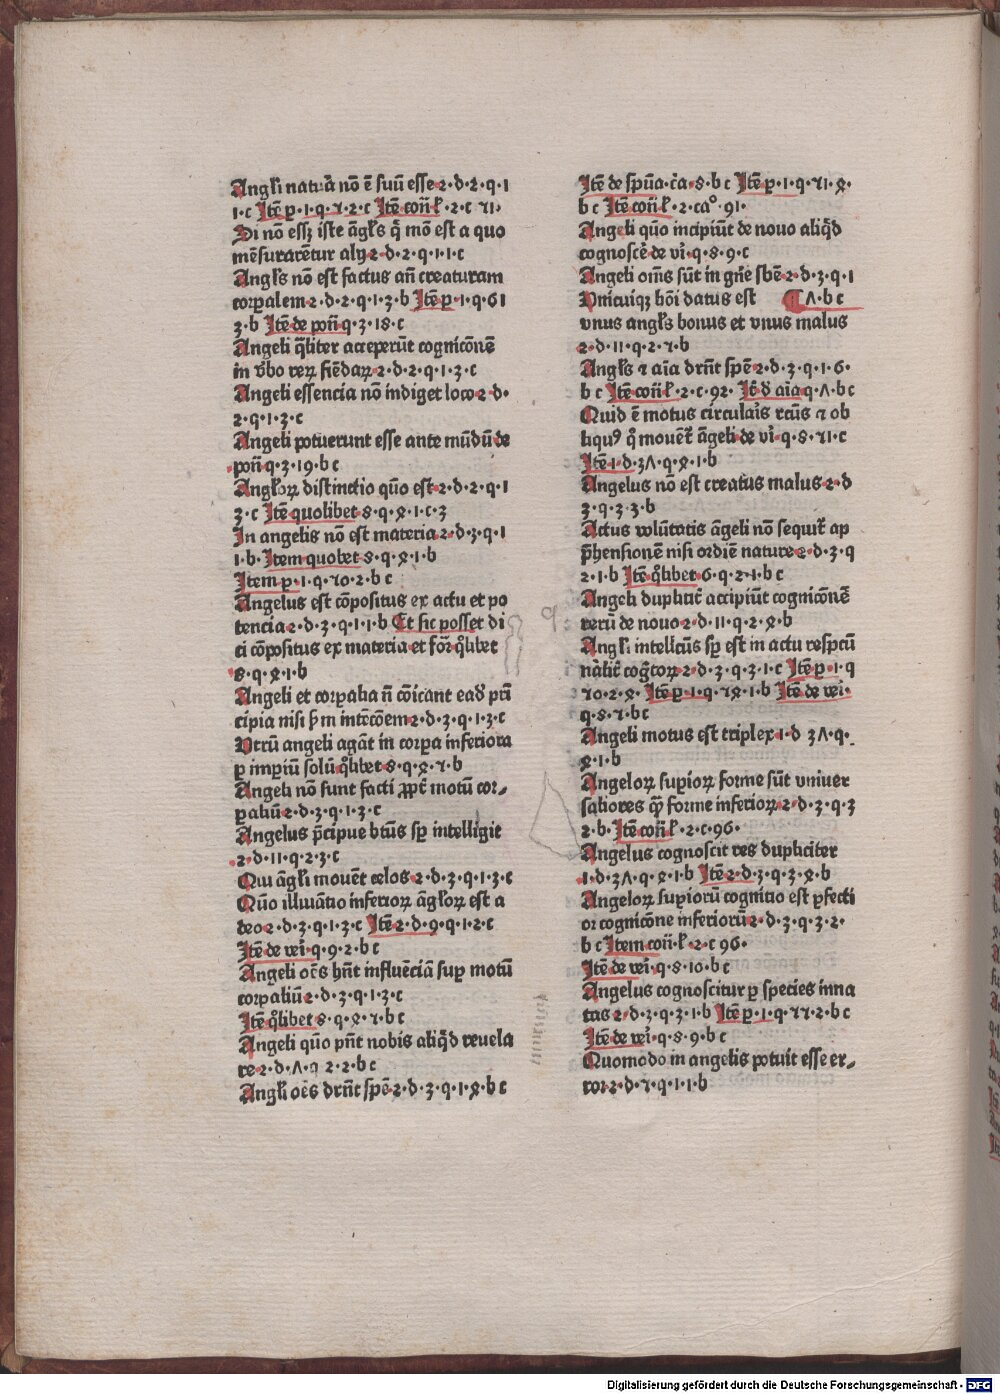 Angl'i natura nō ē suū esse·2·d·2·q·1
1·c Itē p·1·q·7·2·c Itē con̄·l'·2·c 71·
Si nō essꝫ iste āgl's q̄ mō est a quo
mēsurarētur alij·2·d·2·q·1·1·c
Angl's nō est factus an̄ creaturam
corꝑalem·2·d·2·q·1·3·b Itē p·1·q·61
3·b Itē de pon̄·q·3·18·c
Angeli q̄liter acceperūt cognicōnē
in v̄bo rerꝝ fiēdarꝝ·2·d·2·q·1·3·c
Angeli essencia nō indiget loco·2·d·
2·q·1·3·c
Angeli potuerunt esse ante mūdū de
pon̄·q·3·19·b c
Angl'oꝝ distinctio quō est·2·d·2·q·1
3·c Itē quolibet·8·q·8·1·c·3
In angelis nō est materia·2·d·3·q·1
1·b· Item quobet·8·q·8·1·b
Item p·1·q·70·2·b c
Angelus est cōpositus ex actu et po
tencia·2·d·3·q·1·1·b Et sic posset di
ci cōpositus ex materia et for̄ qȯlibet
8·q·8·1·b
Angeli et corꝑalia n̄ cōicant eaď pri
cipia nisi ẜm intēcōem·2·d·3·q·1·3·c
Vtrū angeli agāt in corꝑa inferiora
ꝑ imꝑiū solū qȯlibet·8·q·8·7·b
Angeli nō sunt facti ꝓpt̄ motū cor-
ꝑaliū·2·d·3·q·1·3·c
Angelus p̄cipue btūs sꝑ intelligit
·2·d·11·q·2·3·c
Qui āgl'i mouēt celos·2·d·3·q·1·3·c
Quō illuīatio inferioꝝ āgl'oꝝ est a
deo·2·d·3·q·1·3·c Itē·2·d·9·q·1·2·c
Itē de vei'·q·9·2·b c
Angeli oēs hn̄t influēciā suꝑ motū
corꝑaliū·2·d·3·q·1·3·c
Itē qȯlibet·8·q·8·7·b c
Angeli quō pn̄t nobis aliq̄d reuela
re·2·d·Λ·q 2·2·b c
Angl'i oēs drn̄t spē·2·d·3·q·1·8·b c
Itē de spūa·c̄a·8·b c Itē p·1·q·71·8·
b c Itē con̄·l'·2·ca°·91·
Angeli quo incipiūt de nouo aliq̄d
cognoscē·de vi'·q·8·9·c
Angeli om̄s sūt in gn̄e sb̄e·2·d·3·q·1
Vnicuiqꝫ hōi datus est Λ·b c
vnus angl's bonus et vnus malus
·2·d·11·q·2·7·b
Angl's ⁊ aīa drn̄t spē·2·d·3·q·1·6·
b c Itē con̄·l'·2·c·92· It̄ ď aīa·q·Λ·b c
Quid ē motus circulaīs rcūs ⁊ ob
liquꝰ qȯ mouēt̄ āgeli·de vi'·q·8·71·c
Itē·1·d·3Λ·q·8·1·b
Angelus nō est creatus malus·2·d
3·q·3·3·b
Actus volūtatis āgeli nō sequit̄ ap
p̄hensionē nisi ordiē nature·2·d·3·q
2·1·b Itē qȯlibet·6·q·2·1·b c
Angeli duplicit̄ accipiūt cognicōnē
rerū de nouo·2·d·11·q·2·8·b
Angl'i intellcūs sꝑ est in actu respcū
nālit̄ coḡtoꝝ·2·d·3·q·3·1·c Itē p·1·q
70·2·8· Itē p·1·q·78·1·b Itē de vei'·
q·8·7·b c
Angeli motus est triplex·1·d 3Λ·q·
8·1·b
Angeloꝝ suꝑioꝝ forme sūt vniuer
saliores q̄ꝫ forme inferioꝝ·2·d·3·q·3
2·b· Itē con̄·l'·2·c·96·
Angelus cognoscit res dupliciter
·1·d·3Λ·q·8·1·b Itē·2·d·3·q·3·8·b
Angeloꝝ suꝑiorū cognitio est ꝑfecti
or cognicōne inferiorū·2·d·3·q·3·2·
b c Item con̄·l'·2·c 96·
Itē de vei'·q·8·10·b c
Angelus cognoscitur ꝑ species inna
tas·2·d·3·q·3·1·b Itē p·1·q·77·2·b c
Itē de vei'·q·8·9·b c
Quomodo in angelis potuit esse er-
ror·2·d·7·q·1·1·b
Digitalisierung gefördert durch die Deutsche Forschungsgemeinschaft - DFG